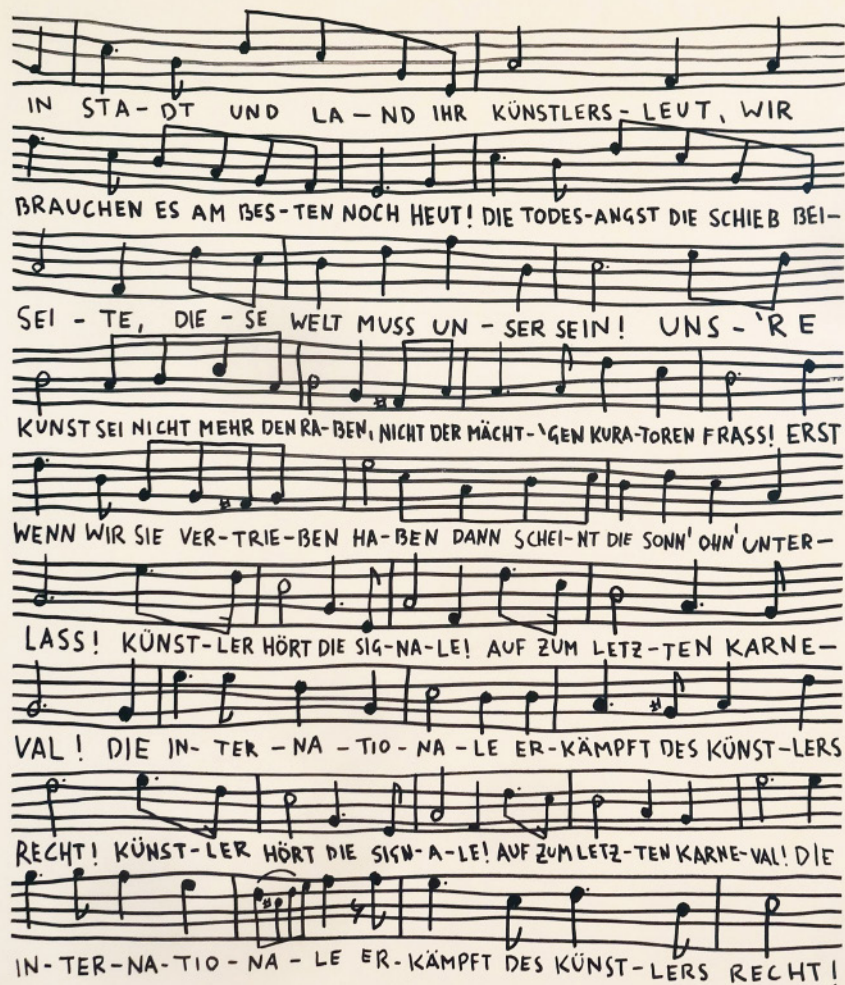 IN STA-DT UND LA-ND IHR KÜNSTLERS-LEUT, WIR
BRAUCHEN ES AM BES-TEN NOCH HEUT! DIE TODES-ANGST DIE SCHIEB BEI-
SEI-TE, DIE-SE WELT MUSS UN-SER SEIN! UNS-'RE
KUNST SEI NICHT MEHR DEN RA-BEN, NICHT DER MÄCHT-'GEN KURA-TOREN FRASS! ERST
WENN WIR SIE VER-TRIE-BEN HA-BEN DANN SCHEI-NT DIE SONN' OHN' UNTER-
LASS! KÜNST-LER HÖRT DIE SIG-NA-LE! AUF ZUM LETZ-TEN KARNE-
VAL! DIE IN-TER-NA-TIO-NA-LE ER-KÄMPFT DES KÜNST-LERS
RECHT! KÜNST-LER HÖRT DIE SIGN-A-LE! AUF ZUM LETZ-TEN KARNE-VAL! DIE
IN-TER-NA-TIO-NA-LE ER-KÄMPFT DES KÜNST-LERS RECHT!